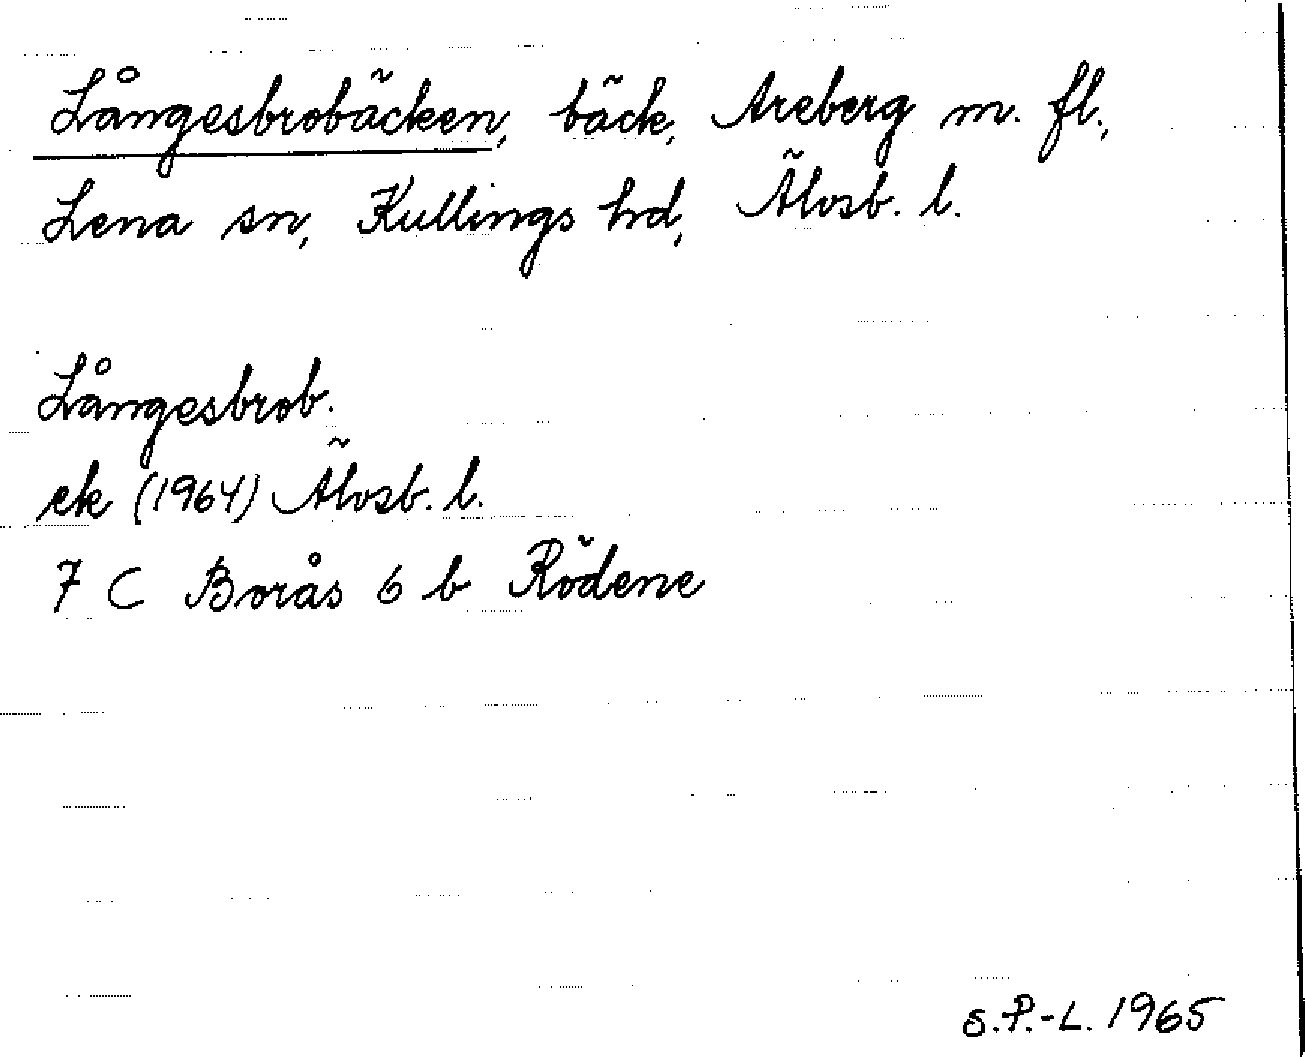 Långesbrobäcken, bäck, Areberg m. fl.,
Lena sn, Kullings hd, Älvsb. l.
Långesbrob.
ek (1964) Älvsb. l.
7 C Borås 6 b Rödene
S.P.-L. 1965